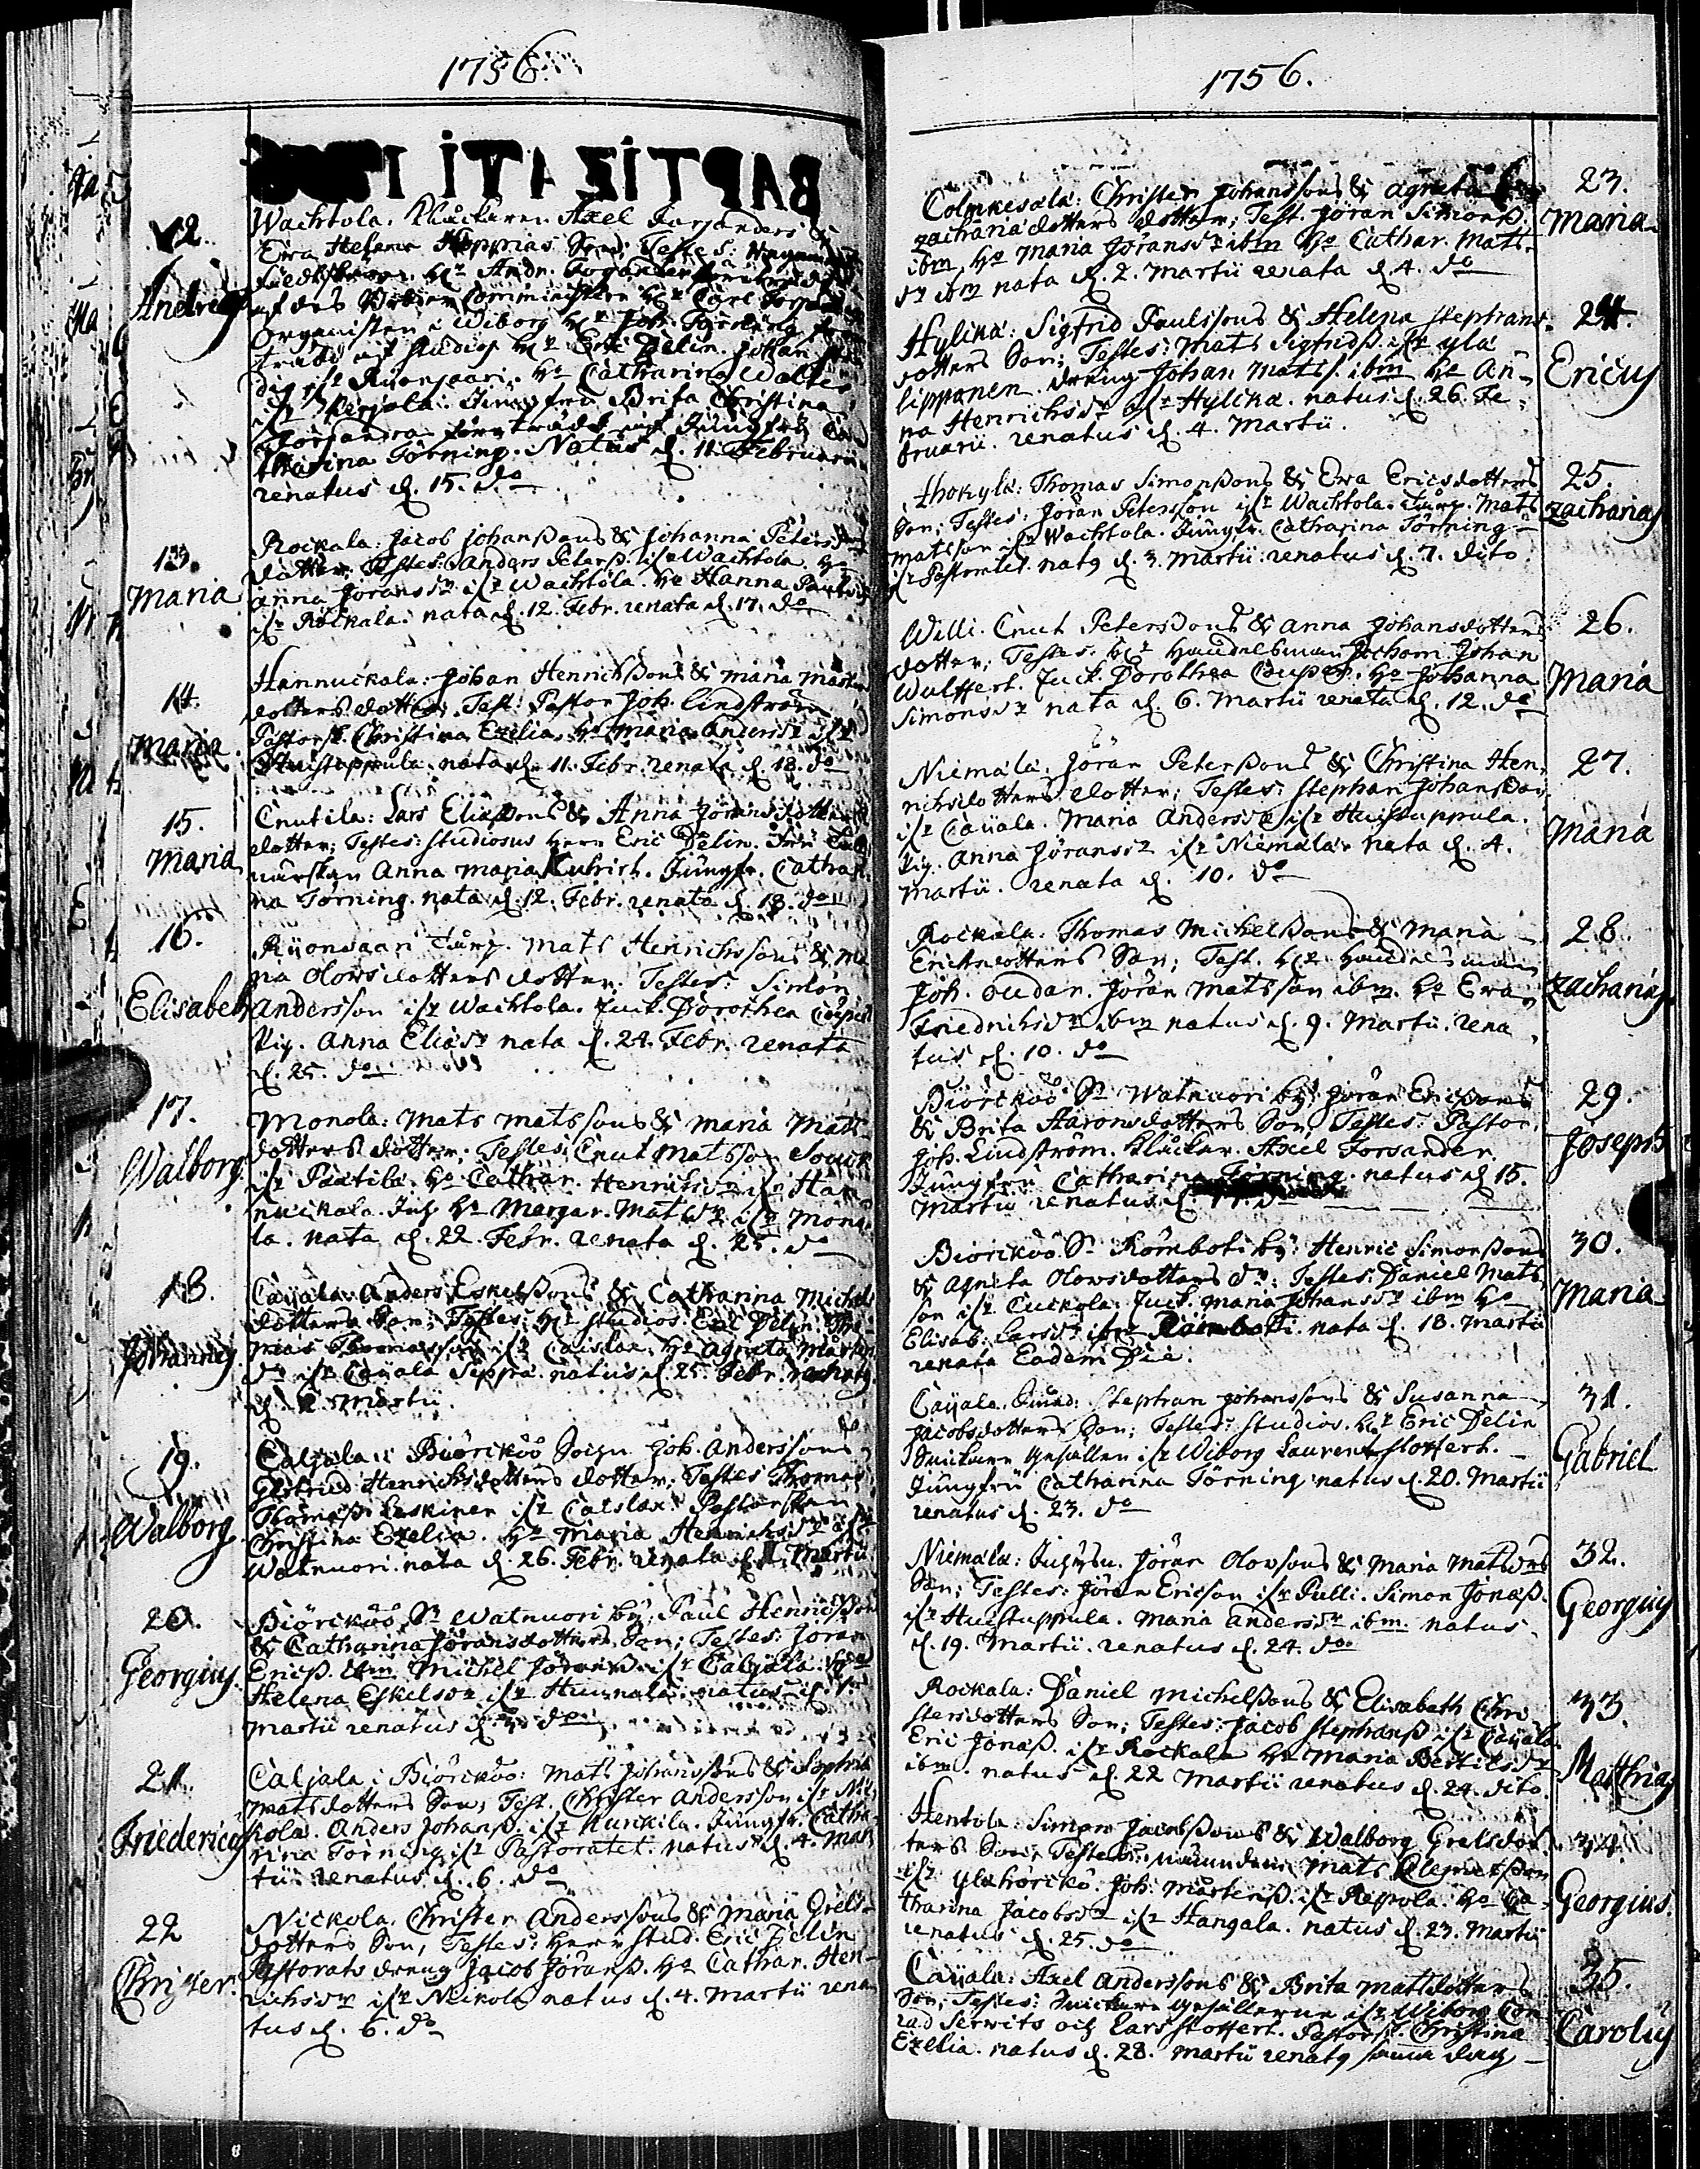 1756.
12.
Andreas
Wachtola. Kluckaren Axel Forsanders &
Ewa Helena Son; Testes:
Hr Andr.
af des Comministern Hr Carl
Organisten i Wiborg Hr Joh. Törning
träde af Studios Hr Eric Delin. Johan
ifr Ruonsaari. Ho Catharina Walters
ifr Perjola. Jungfru Brita Christina
Forsandra företrädt af Jungfru Ca-
tharina Törning. Natus d. 11. Februarii
renatus d. 15. do
13.
Maria
Rockala: Jacob Johanssons & Johanna Peters
dotter; Testes: Anders Peterss. ifr Wachtola. Ho
Anna Joransdr ifr Wachtola. Ho Hanna
ifr Rockala. nata d. 12. Febr. renata d. 17. do
14.
Maria.
Hannuckala: Johan Henrichssons & Maria Mårtens
dotters dotter; Test: Pastor Joh. Lindström
Pastorsk. Christina Ezelia. Ho Maria Andersdr ifr
Huistuppula. nata d. 11. Febr. renata d. 18. do
15.
Maria
Cnutila: Lars Eliassons & Anna Joransdotters
dotter; Testes: Studiosus Herr Eric Delin. Fru
Anna Maria Kubrich. Jungfr. Cathari-
na Törning. nata d. 12. Febr. renata d. 18. do
16.
Elisabeth
Ruonsaari Mats Henrichssons &
na Olowsdotters dotter. Testes: Simon
Andersson ifr Wachtola. Juck. Dorothea
Pig. Anna Eliasdr nata d. 24. Febr. renata
d. 25. do
17.
Walborg
Monola: Mats Matssons & Maria Mats-
dotters dotter; Testes: Cnut Matsson
ifr Paxtila. Ho Cathar. Henrichsdr ifr Han-
nuckala. Ho Margar. Matsdr ifr Mono-
la. nata d. 22. Febr. renata d. 25. do
18.
Johannes
Caijala: Anders Eskelssons & Catharina Michels
dotters Son; Testes: Hr Studios. Eric Delin. Tho-
mas Thomasson ifr Caislax. Ho Agneta Mårtens
dr ifr Caijala Seppä. natus d. 25. Febr. renatus
d. Martii.
19.
Walborg
Caljala i Biörcköö Sochn Joh. Anderssons
Gertrud Henrichsdotters dotter, Testes Thomas
Thomass. Leskinen ifr Caislax. Pastorskan
Christina Ezelia. Ho Maria Henrichsdr ifr
Watnuori. nata d. 26. Febr. renata d. 1. Martii
20.
Georgius.
Biörcköö Sn Watnuori by; Paul Henricssons
& Catharina Joransdotters Son; Testes: Joran
Ericss. ibm. Michel Jöranss. ifr Caljala.
Helena Eskelsdr ifr natus d.
Martii renatus d. do
21.
Friedericus
Caljala i Biörcköö: Mats Johanssons & Sophia
Matsdotters Son; Test. Christer Andersson ifr Nic-
kola. Anders Johanss. ifr Hunkila. Jungfr. Catha-
rina Törning ifr Pastoratet. natus d. 4. Mar-
tii renatus d. 6. do
22
Christer.
Nickola. Christer Anderssons & Maria Grels-
dotters Son, Testes: Herr Stud. Eric Delin
Pastorats dreng Jacob Joranss. Ho Cathar. Hen-
richsdr ifr Nickola natus d. 4. Martii rena-
tus d. 6. do
1756.
23.
Maria
Colmkesala: Christer Johanssons & Agneta
Zachariædotters dotter; Test. Jöran Simonss.
ibm Ho Maria Joransdr ibm Ho Cathar. Mats-
dr ibm nata d. 2. Martii renata d. 4. do
24.
Ericus
Hylikä: Sigfrid Paulssons & Helena Stephans-
dotters Son; Testes: Mats Sigfridss. ifr Ylä
lipponen. dreng Johan Matss. ibm Ho An-
na Henrichsdr ifr Hylikä. natus d. 26. Fe-
bruarii. renatus d. 4. Martii.
25.
Zacharias
Hokyla: Thomas Simonssons & Ewa Ericsdotters
Son; Testes: Jöran Petersson ifr Wachtola. Mats
Matsson ifr Wachtola. Jungfr. Catharina Törning
ifr Pastoratet. nats d. 3. Martii. renatus d. 7. dito
26.
Maria
Willi. Cnut Peterssons & Anna Johansdotters
dotter, Testes: Hr Handelsman Jochom Johan
Wulffert. Juck. Dorothea Ho Johanna
Simonsdr nata d. 6. Martii renata d. 12. do
27.
Maria
Niemälä, Jöran Peterssons & Christina Hen-
richsdotters dotter; Testes: Stephan Johansson
ifr Caijala. Maria Andersdr ifr Huistuppula.
Pig. Anna Joransdr ifr Niemälä. nata d. 4.
Martii. renata d. 10. do
28.
Zacharias.
Rockala. Thomas Michelssons & Maria
Erichsdotters Son; Test. Hr Handelsman
Joh. Jöran Matsson ibm. Ho Ewa
Friedrichsdr ibm natus d. 9. Martii. rena-
tus d. 10. do
29.
Joseph
Biörcköö Sn Watnuori by: Jöran Ericssons
& Brita Aaronsdotters Son, Testes: Pastor
Joh. Lindström. Klåckar. Axel Forsander.
Jungfru Catharina Törning. natus d. 15.
Martii renatus d. 17. do
30.
Maria
Biörcköö Sn Römboti by: Henric Simonssons
& Agneta Olowsdotters dr: Testes: Daniel Mats-
son ifr Cuckola. Juck. Maria Johansdr ibm Ho
Elisab. Larsdr ifr Römboti. nata d. 18. Martii
renata Eodem Die.
31.
Gabriel
Caijala. Stephan Johanssons & Susanna
Jacobsdotters Son; Testes: Studios. Hr Eric Delin
Gesällen ifr Wiborg Laurent Stoffert.
Jungfru Catharina Törning natus d. 20. Martii
renatus d. 23. do
32.
Georgius
Niemälä: Jöran Olovsons & Maria Matsdrs
Son; Testes: Jöran Ericson ifr Pulli. Simon Jonass.
ifr Huistuppula. Maria Andersdr ibm. natus
d. 19. Martii. renatus d. 24. do
33.
Matthias
Rockala: Daniel Michelssons & Elisabeth Chri-
stersdotters Son; Testes: Jacob Stephanss ifr Caijala
Eric Jonass. ifr Rockala Ho Maria Bertilsdr
ibm. natus d. 22 Martii renatus d. 24. dito.
34.
Georgius.
Hentola: Simon Jacobssons & Walborg Grelsdot-
ters Son, Testes: Mats Clemetsson
ifr Ylähörckö. Joh: Mårtenss. ifr Repola. Ho Ca-
tharina Jacobsdr ifr Hangala. natus d. 23. Martii
renatus d. 25. do
35.
Carolus
Caijala: Axel Anderssons & Brita Matsdotters
Son, Testes: Gesällerne ifr Wiborg Con-
rad Serwits och Lars Stoffert. Pastorsk. Christina
Ezelia. natus d. 28. Martii renats samma dag